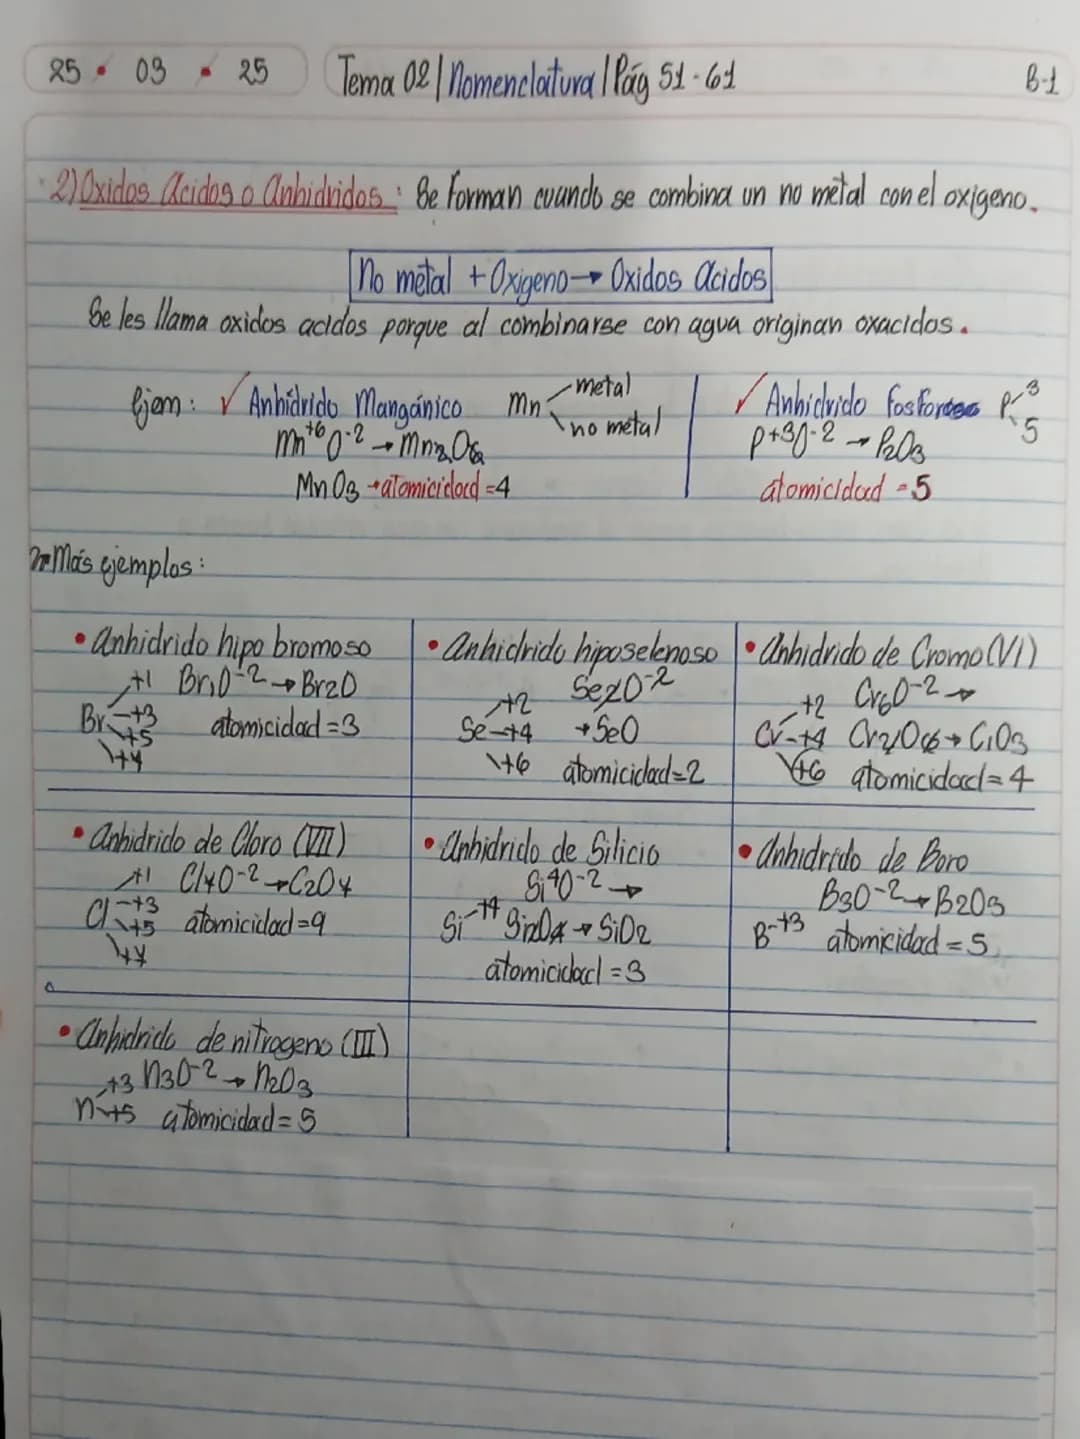 25 • 03 • 25
Tema 02 | Nomenclatura | Pág 51 - 61
B-1
2) Oxidos Acidos o Anhidridos : Se Forman cuando se combina un no metal con el oxigeno.
No metal + Oxigeno → Oxidos Acidos
Se les llama oxidos acidos porque al combinarse con agua originan oxacidos.
Ejem: ✓ Anhídrido Mangánico Mn metal no metal
Mn+6 O-2 → Mn2O6
MnO3 → atomicidad = 4
✓ Anhidrido Fosforoso P 3 5
P+3O-2 → P2O3
atomicidad = 5
Más ejemplos:
• Anhidrido hipo bromoso
+1 Br1O-2 → Br2O
Br +3 atomicidad = 3
+5
+7
• Anhidrido hiposelenoso
Se2O-2
+2
Se +4 → SeO
+6 atomicidad = 2
• Anhidrido de Cromo (VI)
+2 Cr6O-2 →
Cr +4 Cr2O6 → CrO3
+6 atomicidad = 4
• Anhidrido de Cloro (VII)
+1 Cl7O-2 → C2O7
Cl +3
+5 atomicidad = 9
+7
• Anhidrido de Silicio
Si4O-2 →
Si +4 Si2O4 → SiO2
atomicidad = 3
• Anhidrido de Boro
B3O-2 → B2O3
B +3 atomicidad = 5
• Anhidrido de nitrogeno (III)
+3 N3O-2 → N2O3
N +5 atomicidad = 5